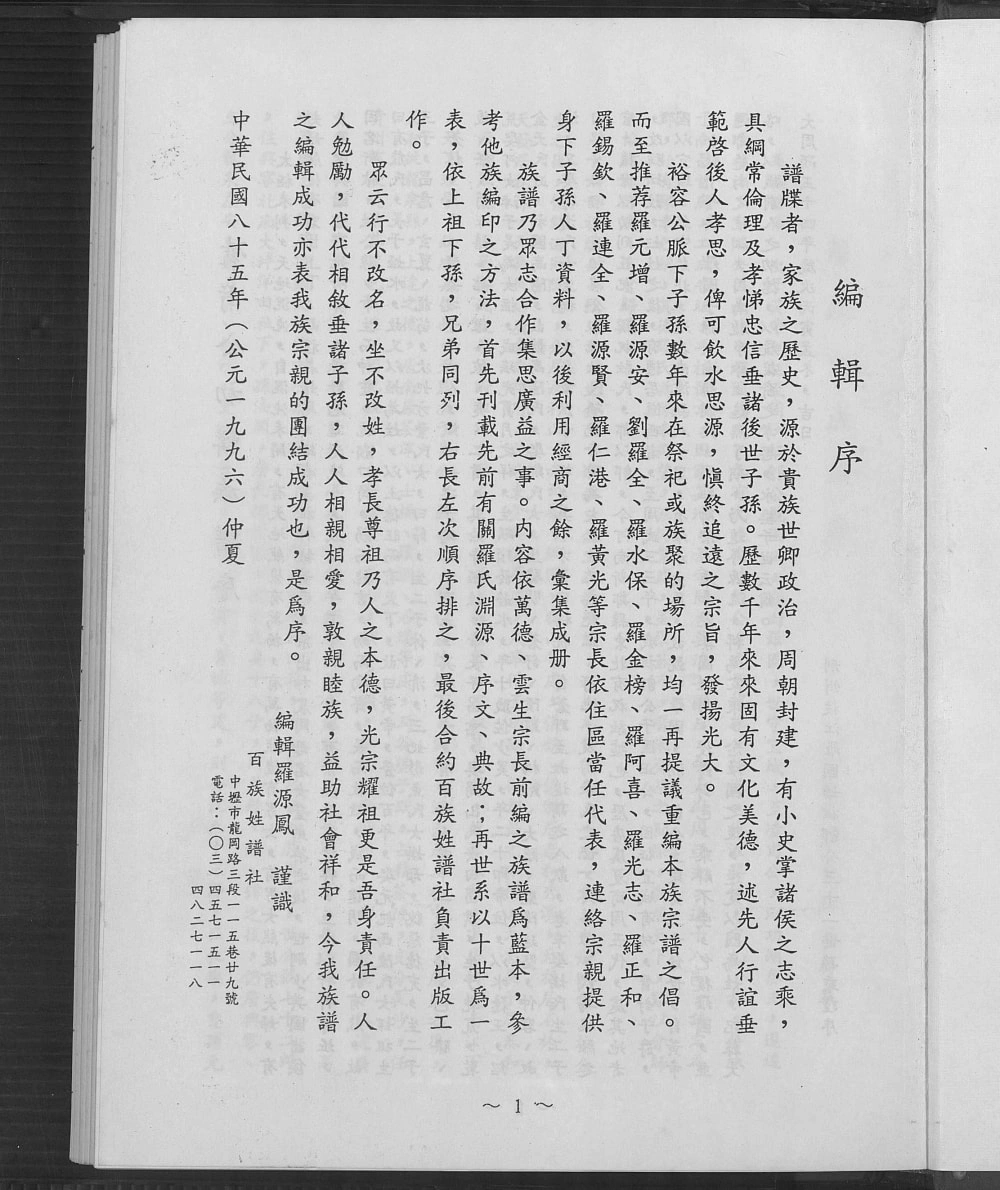 編輯序
譜牒者，家族之歷史，源於貴族世卿政治，周朝封建，有小史掌諸侯之志乘，
具綱常倫理及孝悌忠信垂諸後世子孫。歷數千年來來固有文化美德，述先人行誼垂
範啓後人孝思，俾可飲水思源，愼終追遠之宗旨，發揚光大。
裕容公脈下子孫數年來在祭祀或族聚的場所，均一再提議重編本族宗譜之倡。
而至推荐羅元增、羅源安、劉羅全、羅水保、羅金榜、羅阿喜、羅光志、羅正和、
羅錫欽、羅連全、羅源賢、羅仁港、羅黃光等宗長依住區當任代表，連絡宗親提供
身下子孫人丁資料，以後利用經商之餘，彙集成册。
族譜乃眾志合作集思廣益之事。内容依萬德、雲生宗長前編之族譜爲藍本，參
考他族編印之方法，首先刊載先前有關羅氏淵源、序文、典故；再世系以十世爲一
表，依上祖下孫，兄弟同列，右長左次順序排之，最後合約百族姓譜社負責出版工
作。
眾云行不改名，坐不改姓，孝長尊祖乃人之本德，光宗耀祖更是吾身責任。人
人勉勵，代代相敘垂諸子孫，人人相親相愛，敦親睦族，益助社會祥和，今我族譜
之編輯成功亦表我族宗親的團結成功也，是爲序。
編輯羅源鳳　謹識
百族姓譜社
中壢市龍岡路三段一一五巷廿九號
電話：（〇三）四五七一五一一
四八二七一一八
中華民國八十五年（公元一九九六）仲夏
～1～